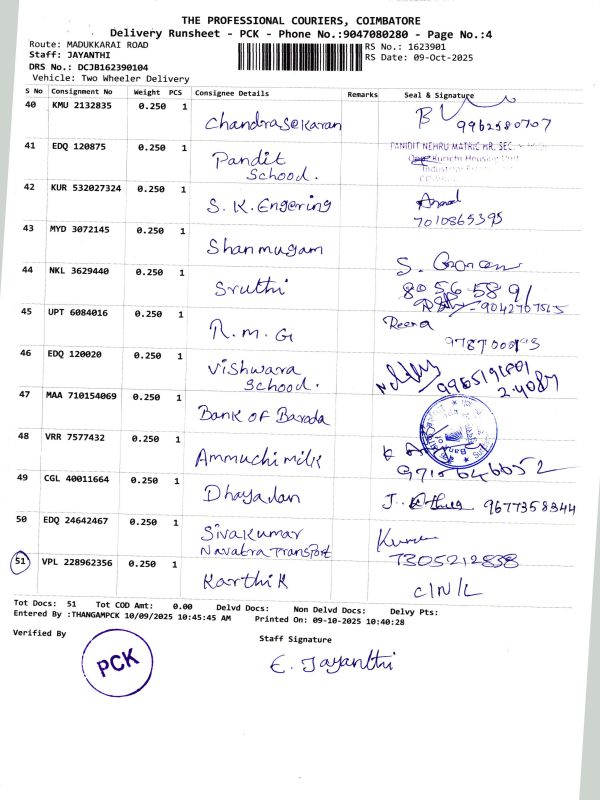 THE PROFESSIONAL COURIERS, COIMBATORE
Delivery Runsheet - PCK - Phone No.:9047080280 - Page No.:4
Route: MADUKKARAI ROAD
RS No.: 1623901
Staff: JAYANTHI
RS Date: 09-Oct-2025
DRS No.: DCJB162390104
Vehicle: Two Wheeler Delivery
S No Consignment No Weight PCS Consignee Details Remarks Seal & Signature
40 KMU 2132835 0.250 1 Chandrasekaran 9962580707
41 EDQ 120875 0.250 1 Pandit School. PANIDIT NEHRU MATRIC HR. SEC.
Kurichi Housing Unit
Industrial
42 KUR 532027324 0.250 1 S. K. Engering
7010865395
43 MYD 3072145 0.250 1 Shanmugam
44 NKL 3629440 0.250 1 Sruthi
45 UPT 6084016 0.250 1 R. M. G Reena
46 EDQ 120020 0.250 1 Vishwara School.
47 MAA 710154069 0.250 1 Bank OF Baroda
48 VRR 7577432 0.250 1 Ammuchi milk
49 CGL 40011664 0.250 1 Dhayadan 9677358344
50 EDQ 24642467 0.250 1 Sivakumar
Navatra Transport
7305212838
51 VPL 228962356 0.250 1 Karthik C/N/L
Tot Docs: 51 Tot COD Amt: 0.00 Delvd Docs: Non Delvd Docs: Delvy Pts:
Entered By :THANGAMPCK 10/09/2025 10:45:45 AM Printed On: 09-10-2025 10:40:28
Verified By
Staff Signature
PCK
E. Jayanthi